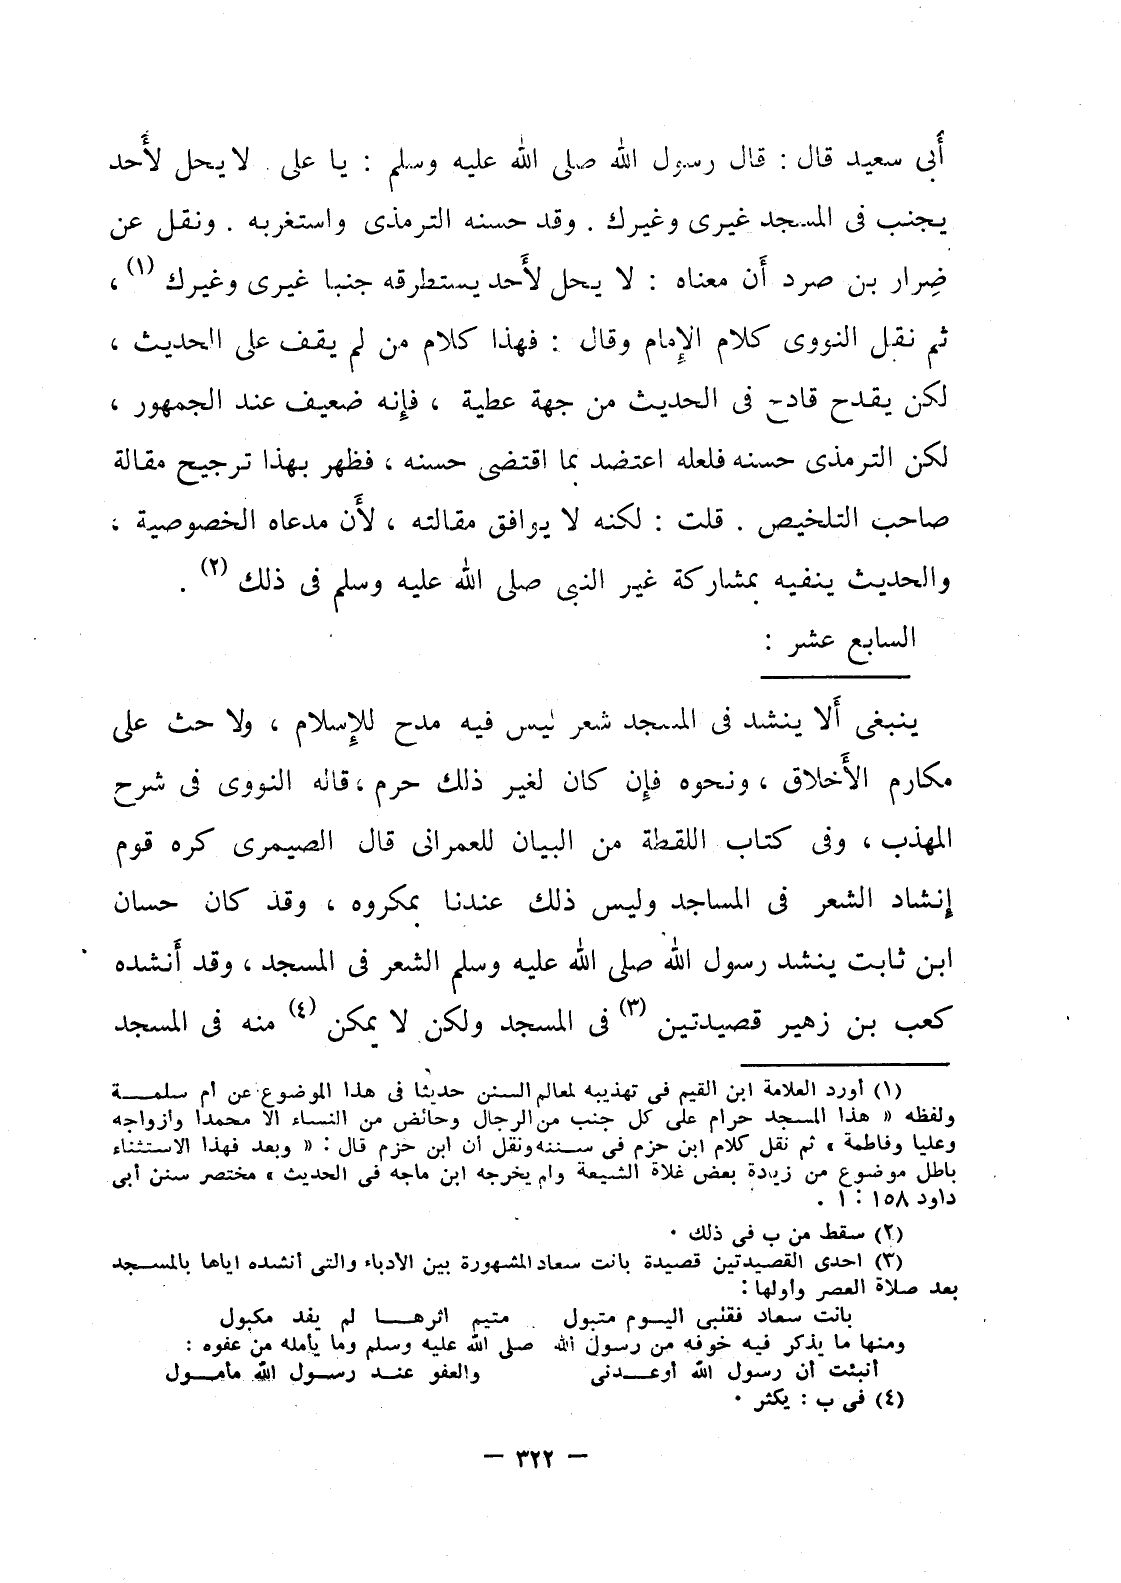 أَبى سعيد قال : قال رسول الله صلى الله عليه وسلم : يا على لا يحل لأَحد
يجنب فى المسجد غيرى وغيرك . وقد حسنه الترمذى واستغربه . ونقل عن
ضِرار بن صرد أَن معناه : لا يحل لأَحد يستطرقه جنبا غيرى وغيرك (١) ،
ثم نقل النووى كلام الإِمام وقال : فهذا كلام من لم يقف على الحديث ،
لكن يقدح قادح فى الحديث من جهة عطية ، فإِنه ضعيف عند الجمهور ،
لكن الترمذى حسنه فلعله اعتضد بما اقتضى حسنه ، فظهر بهذا ترجيح مقالة
صاحب التلخيص . قلت : لكنه لا يوافق مقالته ، لأَن مدعاه الخصوصية ،
والحديث ينفيه بمشاركة غير النبى صلى الله عليه وسلم فى ذلك (٢) .
السابع عشر :
ينبغى أَلا ينشد فى المسجد شعر ليس فيه مدح للإِسلام ، ولا حث على
مكارم الأَخلاق ، ونحوه فإِن كان لغير ذلك حرم ، قاله النووى فى شرح
المهذب ، وفى كتاب اللقطة من البيان للعمرانى قال الصيمرى كره قوم
إِنشاد الشعر فى المساجد وليس ذلك عندنا بمكروه ، وقد كان حسان
ابن ثابت ينشد رسول الله صلى الله عليه وسلم الشعر فى المسجد ، وقد أَنشده
كعب بن زهير قصيدتين (٣) فى المسجد ولكن لا يمكن (٤) منه فى المسجد
(١) أورد العلامة ابن القيم فى تهذيبه لمعالم السنن حديثا فى هذا الموضوع عن أم سلمة
ولفظه « هذا المسجد حرام على كل جنب من الرجال وحائض من النساء الا محمدا وأزواجه
وعليا وفاطمة » ثم نقل كلام ابن حزم فى سننه ونقل أن ابن حزم قال : « وبعد فهذا الاستثناء
باطل موضوع من زيادة بعض غلاة الشيعة ولم يخرجه ابن ماجه فى الحديث » مختصر سنن أبى
داود ١٥٨ : ١ .
(٢) سقط من ب فى ذلك .
(٣) احدى القصيدتين قصيدة بانت سعاد المشهورة بين الأدباء والتى أنشده اياها بالمسجد
بعد صلاة العصر وأولها :
بانت سعاد فقلبى اليوم متبول متيم اثرها لم يفد مكبول
ومنها ما يذكر فيه خوفه من رسول الله صلى الله عليه وسلم وما يأمله من عفوه :
أنبئت أن رسول الله أوعدنى والعفو عند رسول الله مأمول
(٤) فى ب : يكثر .
— ٣٢٢ —